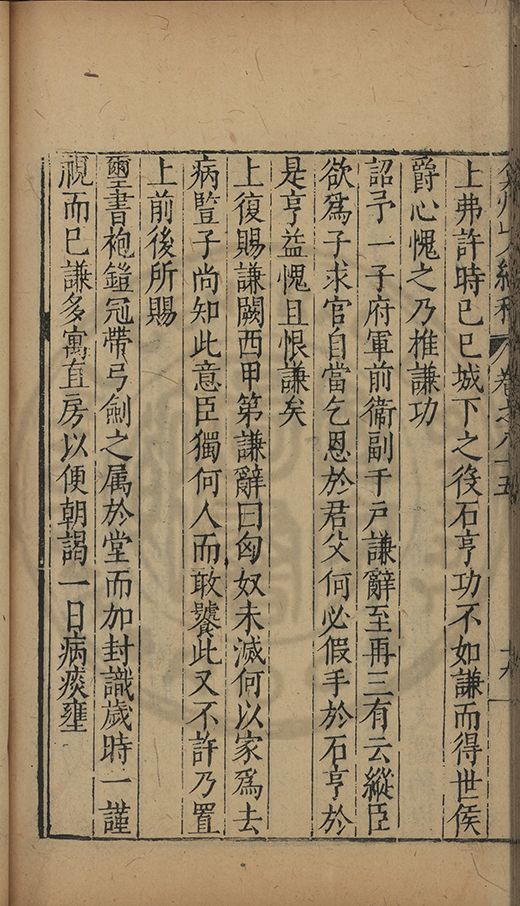 卷之八十五
上弗許時已巳城下之後石亨功不如謙而得世侯
爵心愧之乃推謙功
詔予一子府軍前衛副千戶謙辭至再三有云縱臣
欲爲子求官自當乞恩於君父何必假手於石亨於
是亨益愧且恨謙矣
上復賜謙闕西甲第謙辭曰匈奴未滅何以家爲去
病豎子尚知此意臣獨何人而敢饕此又不許乃置
上前後所賜
璽書袍鎧冠帶弓劍之属於堂而加封識歲時一謹
視而已謙多寓直房以便朝謁一日病痰壅